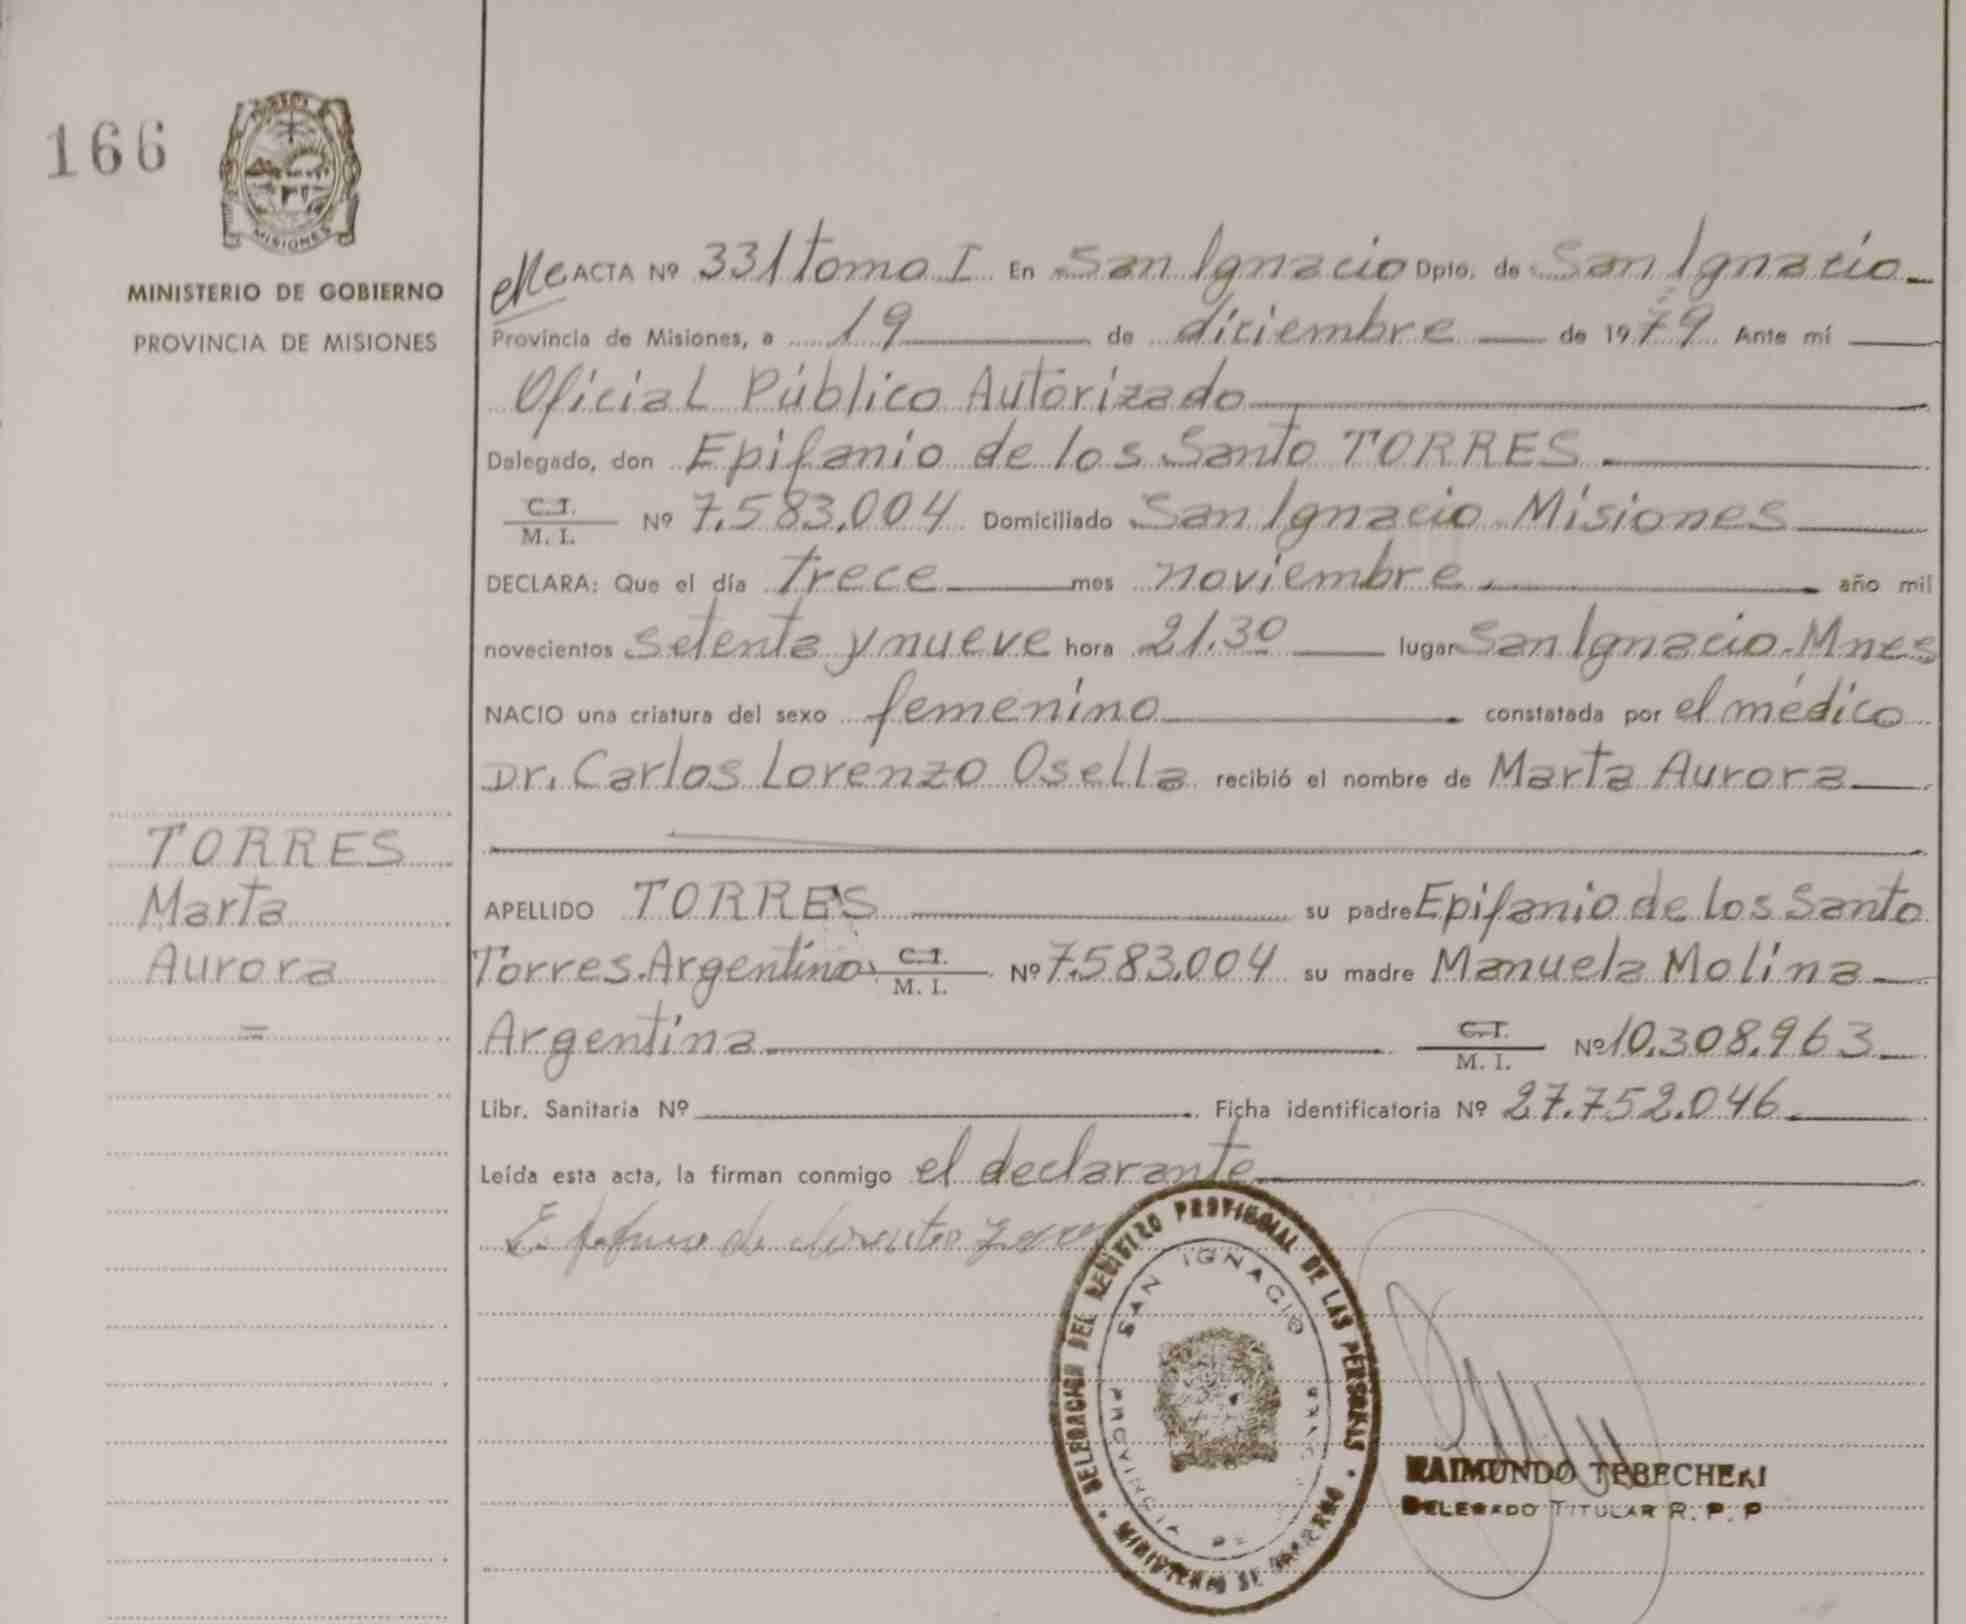 166
MISIONES
MINISTERIO DE GOBIERNO
PROVINCIA DE MISIONES
TORRES
Marta
Aurora
=
ACTA Nº 331 tomo I En San Ignacio Dpto. de San Ignacio
Provincia de Misiones, a 19 de diciembre de 1979 Ante mí
Oficial Público Autorizado
Delegado, don Epifanio de los Santo TORRES.
C.I.
M. I. Nº 7.583.004 Domiciliado San Ignacio Misiones
DECLARA: Que el día trece mes noviembre año mil
novecientos setenta y nueve hora 21.30 lugar San Ignacio-Mnes
NACIO una criatura del sexo femenino constatada por el médico
Dr. Carlos Lorenzo Osella recibió el nombre de Marta Aurora
APELLIDO TORRES su padre Epifanio de los Santo
Torres. Argentino C.I.
M. I. Nº 7.583.004 su madre Manuela Molina
Argentina C.I.
M. I. Nº 10.308.963
Libr. Sanitaria Nº Ficha identificatoria Nº 27.752.046
Leída esta acta, la firman conmigo el declarante
DELEGACION DEL REGISTRO PROVINCIAL DE LAS PERSONAS
SAN IGNACIO
PROVINCIA DE
MINISTERIO DE GOBIERNO
RAIMUNDO TEBECHERI
DELEGADO TITULAR R. P. P